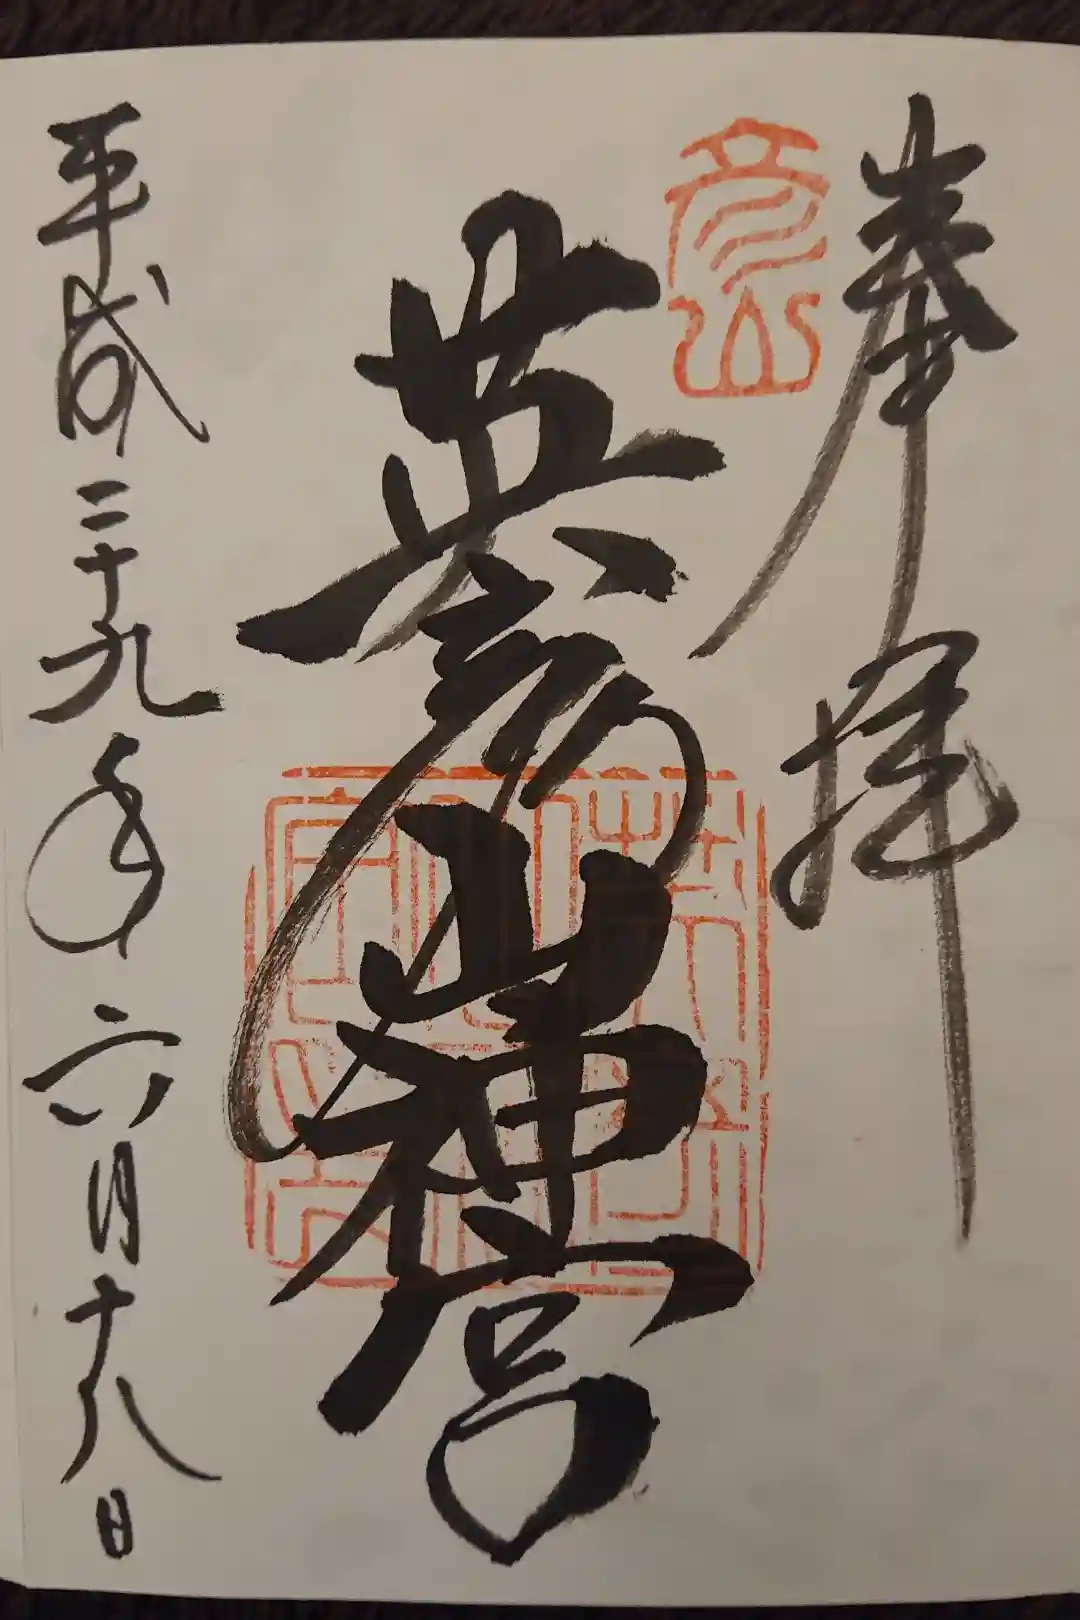 奉拝
彦山
英彦山神宮
平成二十九年六月十八日